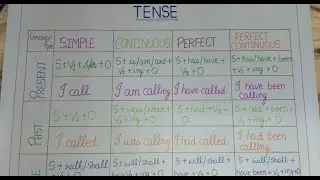 TENSE
SIMPLE CONTINUOUS PERFECT PERFECT CONTINUOUS
PRESENT
S + V₁ + s/es + O
S + is/am/are + V₁ + ing + O
S + has/have + V₃ + O
S + has/have + been + V₁ + ing + O
I call
I am calling
I have called
I have been calling
PAST
S + V₂ + O
S + was/were + V₁ + ing + O
S + had + V₃ + O
S + had + been + V₁ + ing + O
I called
I was calling
I had called
I had been calling
S + will/shall
S + will/shall + be + V₁ + ing + O
S + will/shall + have + V₃ + O
S + will/shall + have + been + V₁ + ing + O